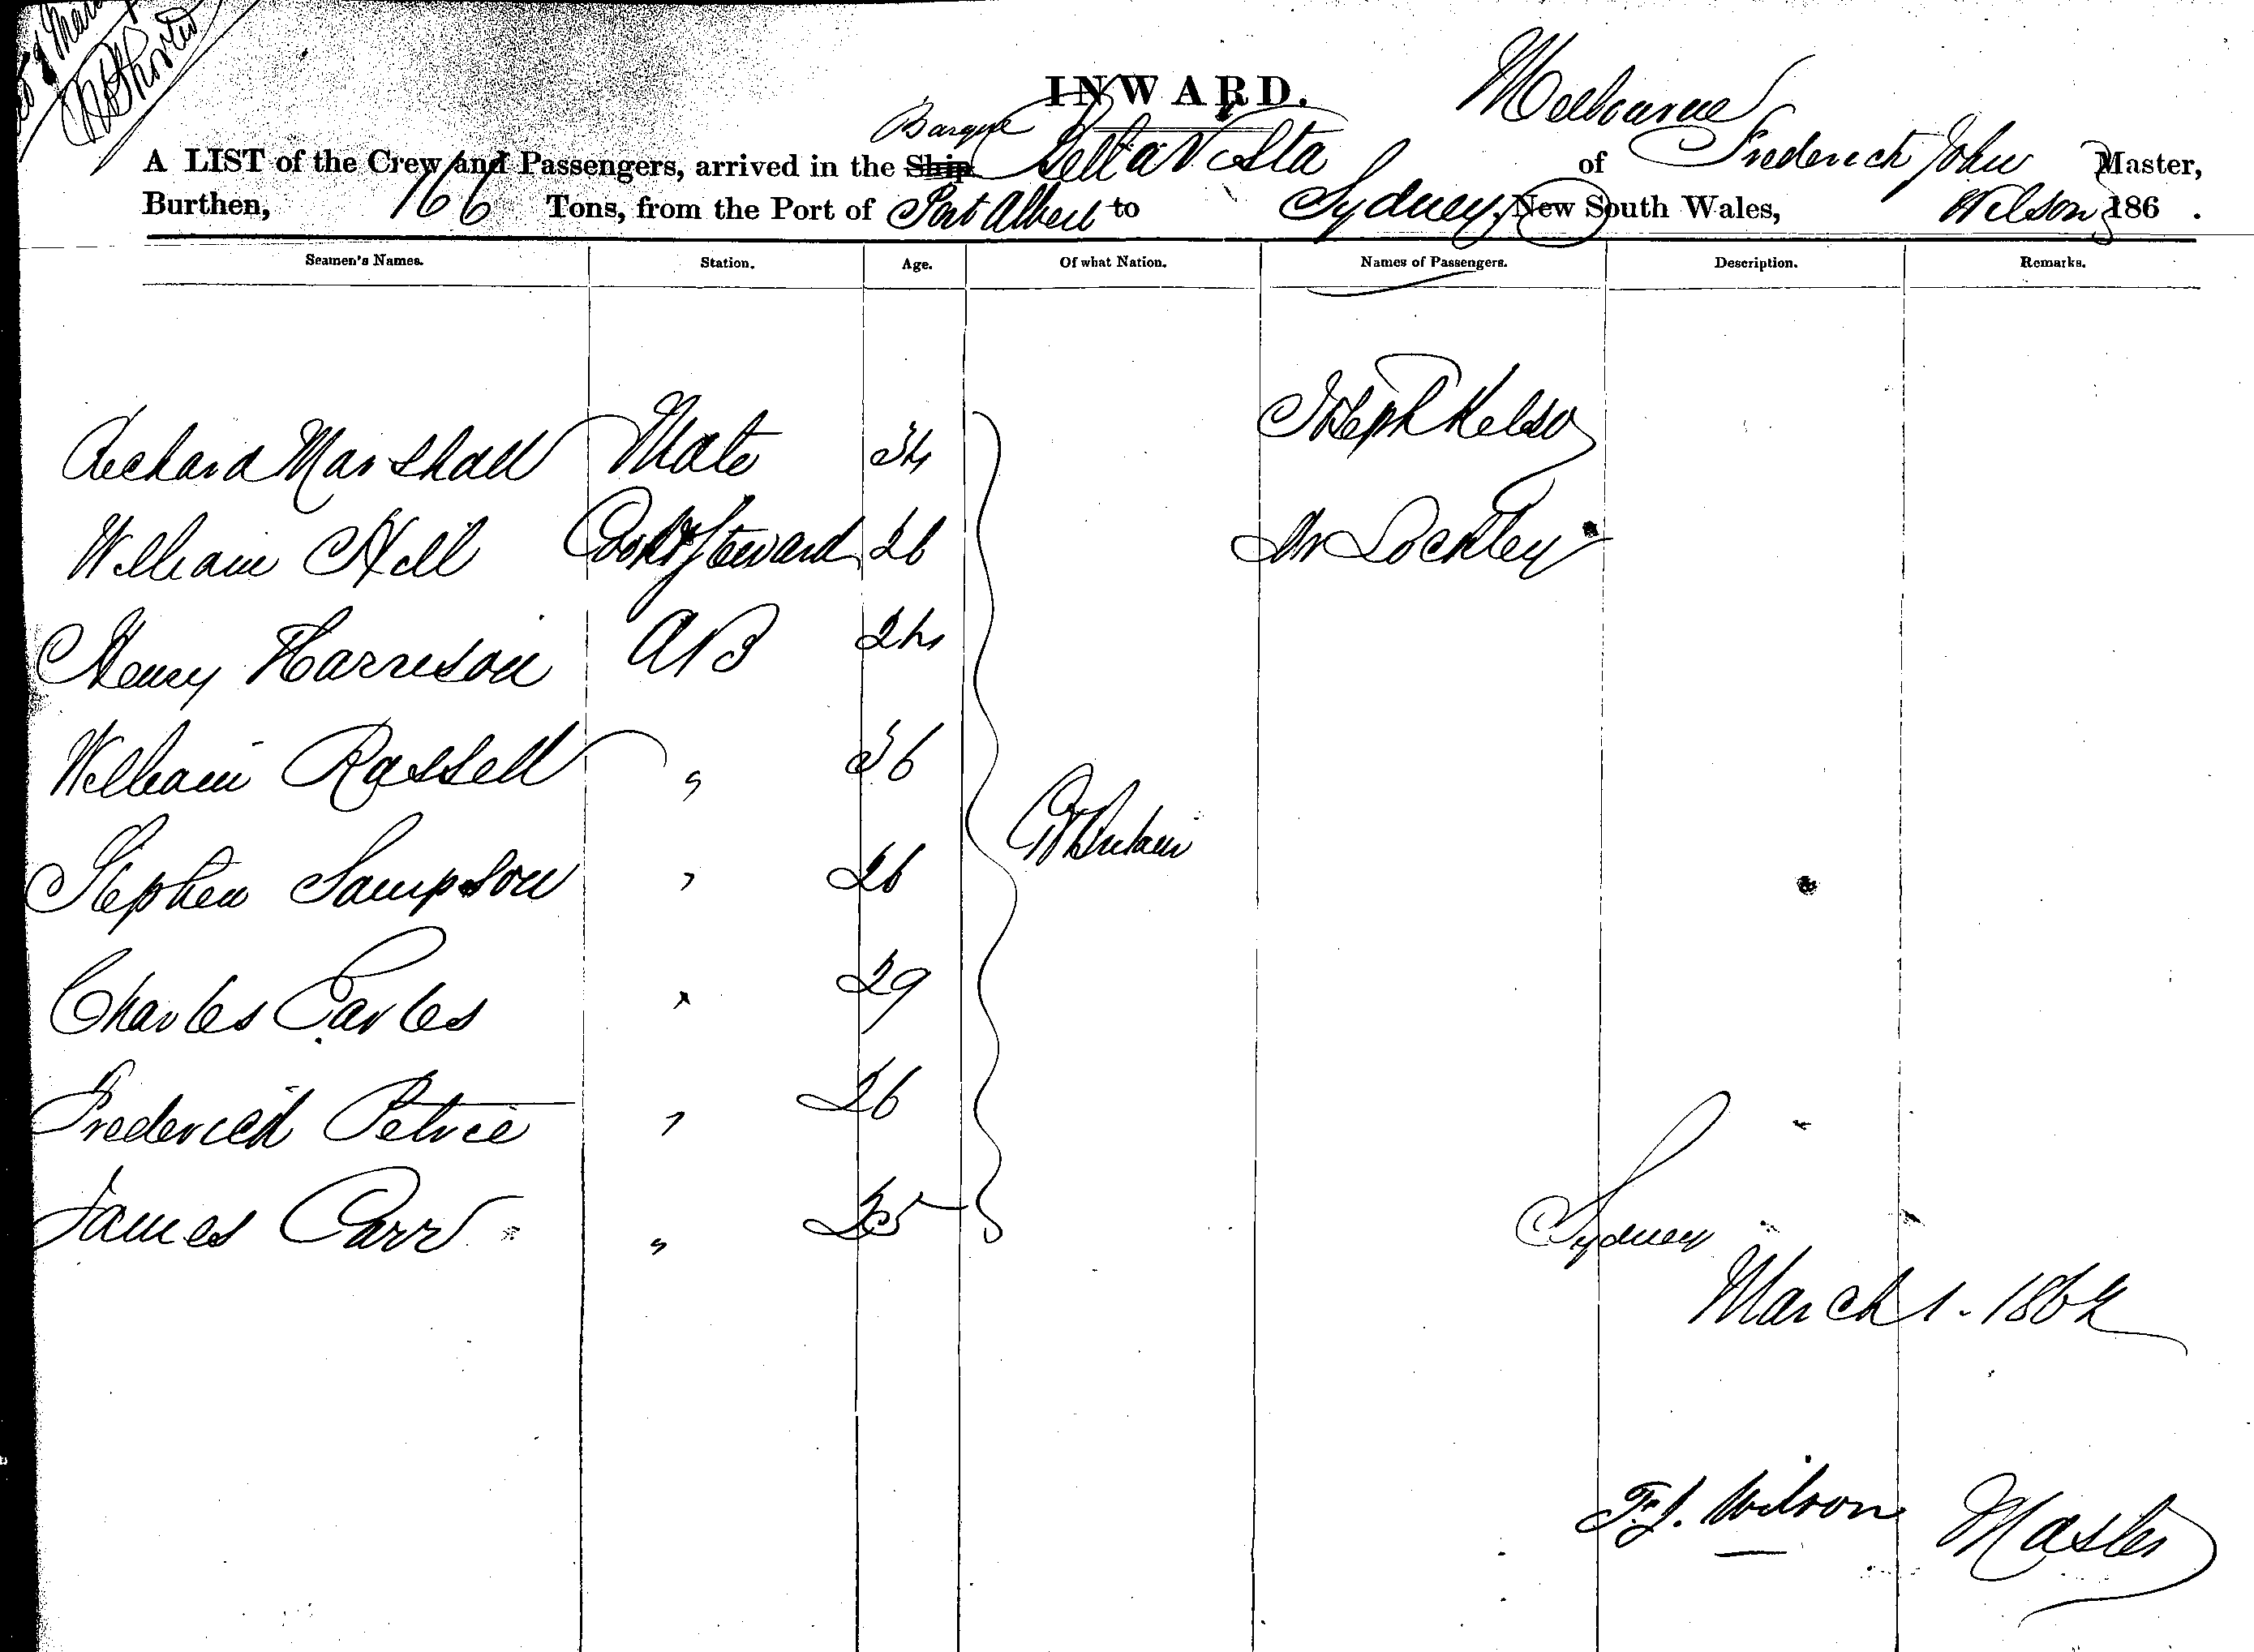 INWARD.
Melbourne
A LIST of the Crew and Passengers, arrived in the Ship Barque Bella Vista of Frederick John Master,
Burthen, 166 Tons, from the Port of Port Albert to Sydney, New South Wales, Wilson 186 .
Seamen's Names. Station. Age. Of what Nation. Names of Passengers. Description. Remarks.
Joseph Kelso
Richard Marshall Mate 34
William Hill Cook & Steward 26 Mr Lockley
Henry Harrison AB 24
William Russell " 36
Gt Britain
Stephen Sampson " 26
Charles Earles " 29
Frederick Petrie " 26
James Carr " 25
Sydney
March 1. 1864
F. J. Wilson Master